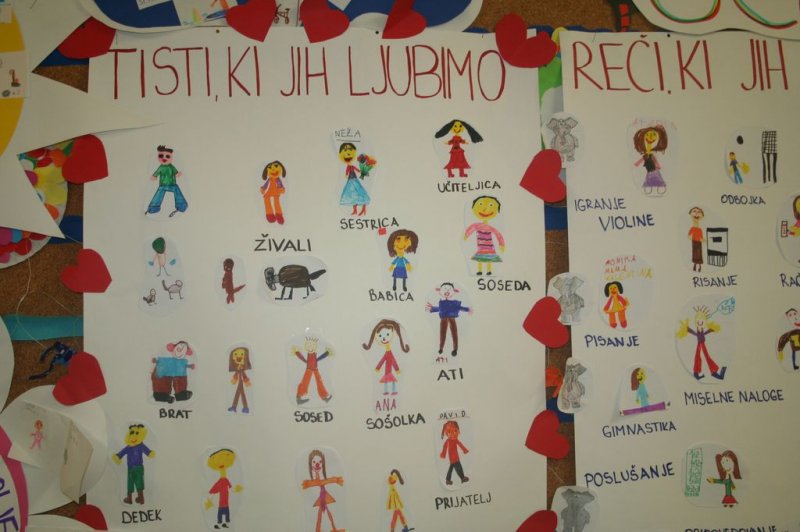 TISTI, KI JIH LJUBIMO
NEŽA
UČITELJICA
SESTRICA
ŽIVALI
SOSEDA
BABICA
ATI
ATI
BRAT
SOSED
ANA
SOŠOLKA
DAVID
DEDEK
PRIJATELJ
REČI, KI JIH
IGRANJE
VIOLINE
ODBOJKA
RISANJE
MONIKA
PISANJE
MISELNE NALOGE
GIMNASTIKA
POSLUŠANJE